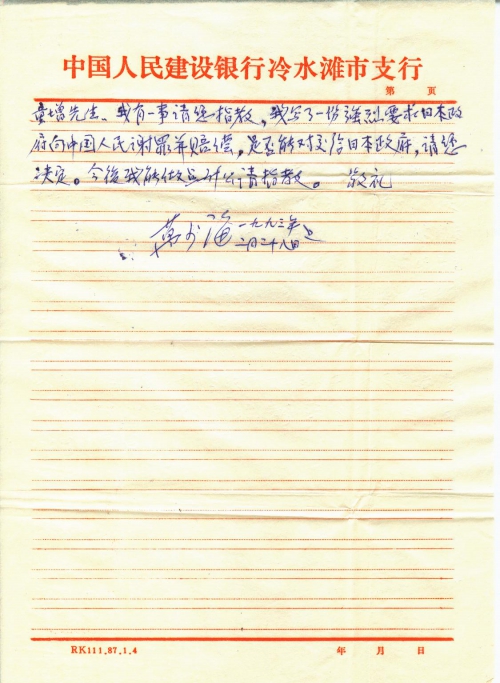 中国人民建设银行冷水滩市支行
第 页
童增先生、我有一事请您指教，我写了一份强烈要求日本政
府向中国人民谢罪并赔偿，是否能对交给日本政府，请您
决定。今後我能做点什么请指教。 敬礼
一九九三年
二月二十八日
RK111.87.1.4
年 月 日